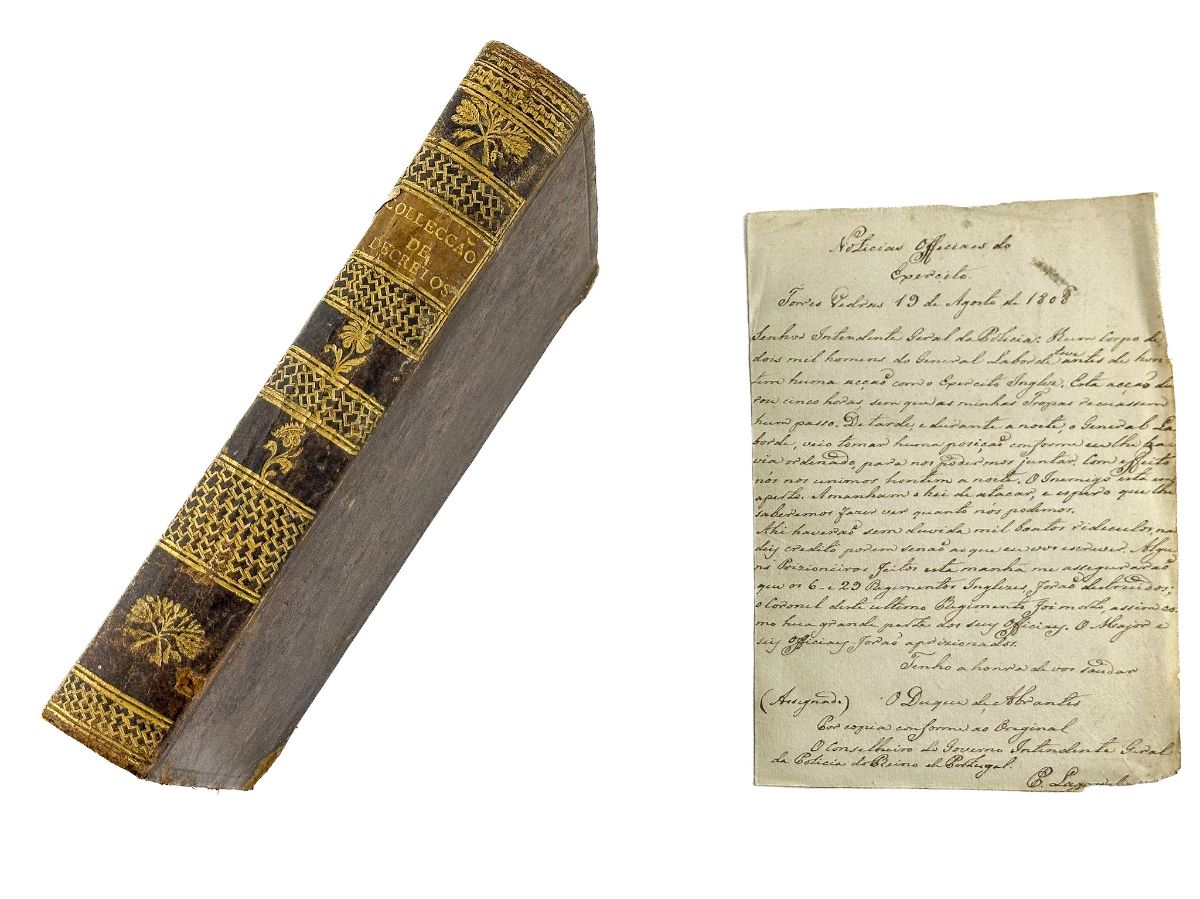 COLLECCÃO
DE
DECRETOS
Noticias Officiaes do
Exercito.
Torres Vedras 19 de Agosto de 1808
Senhor Intendente Geral da Policia: Hum Corpo de
dois mil homens do General Laborde teve antes de hon-
tem huma acção com o Exercito Inglez. Esta acção du-
rou cinco horas, sem que as minhas Tropas recuassem
hum passo. De tarde, e durante a noite, o General La-
borde, veio tomar huma posição conforme eu lhe ha-
via ordenado, para nos podermos juntar. Com effeito
nós nos unimos hontem a noite. O Inemigo está em
aperto. Amanham o hei de atacar, e espero que lhe
saberemos fazer ver quanto nós podemos.
Ahi haverão sem duvida mil Contos rediculos, não
deis credito porem senão ao que eu vos escrever. Algu-
ns Prizioneiros feitos esta manhã me assegurarão
que os 6 e 29 Regimentos Inglezes forão destruidos:
o Coronel deste ultimo Regimento foi morto, assim co-
mo hua grande parte dos seus Officiaes. O Major e
seis Officiaes forão aprizionados.
Tenho a honra de vos saudar
(Assignado.) O Duque de Abrantes
Por copia conforme ao Original
O Conselheiro do Governo Intendente Geral
da Policia do Reino de Portugal.
P. Lagarde